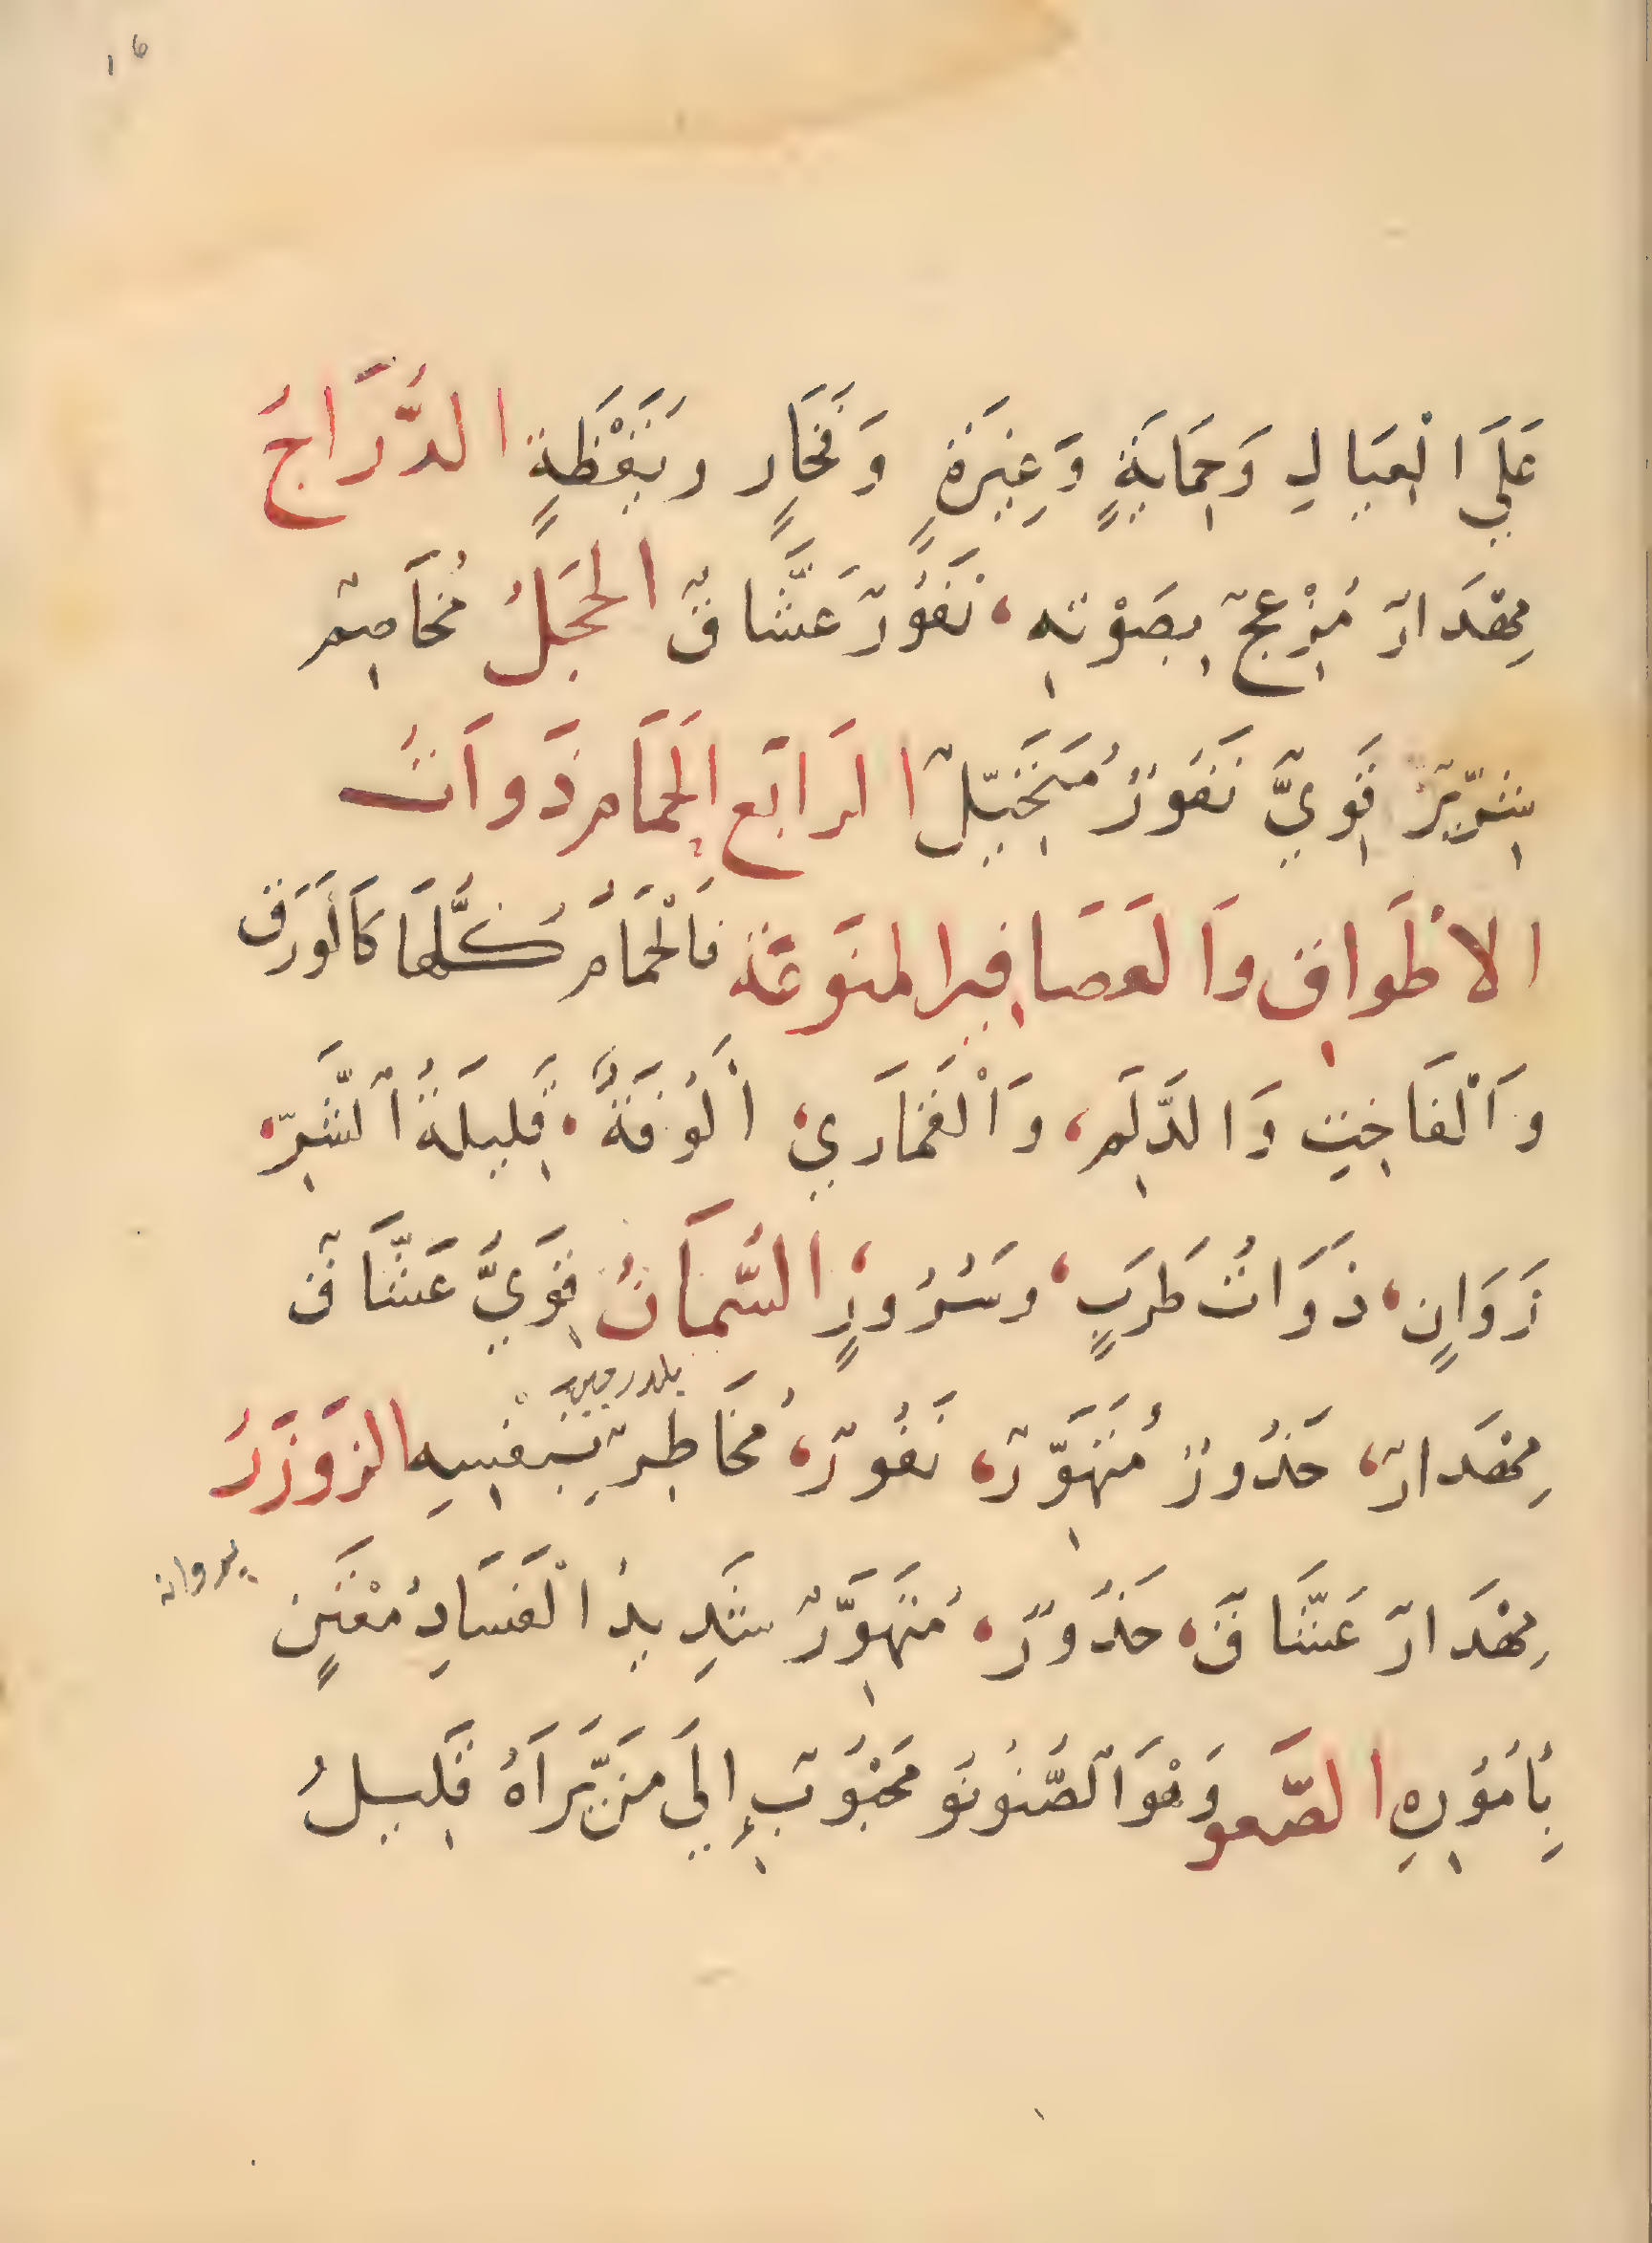 ١٦
عَلَي الْعِيَالِ وَحِمَايَةٍ وَغَيْرَةٍ وَفَخَارٍ وَيَقْظَةٍ الدُّرَّاجُ
مِهْدَارٌ مُزْعِجٌ بِصَوْتِهِ، نَفُوْرٌ عَشَّاقٌ الحَجَلُ مُخَاصِمٌ
شِرِّيْرٌ قَوِيٌّ نَفُوْرٌ مُتَخَيِّلٌ الرَابَع الحَمَام ذَوَاتُ
الاطْوَاقِ وَالعَصَافِير المنَوعَة فَالْحَمَامُ كُلُّهَا كَالوَرَقِ
وَالْفَاخِتِ وَالدَّلَمِ، وَالْقَمَارَي، أَلُوْفَةٌ، قَلِيلَةُ الشَّرِّ،
زَوَانٍ، ذَوَاتُ طَرَبٍ، وسُرُورٍ، السُّمَانُ قَوِيٌّ عَشَّاقٌ
مِهْدَارٌ، حَذُورٌ مُتَهَوِّرٌ، نَفُورٌ، مُخَاطِرٌ بِنَفْسِهِ الزَرْزَرُ
مِهْدَارٌ عَشَّاقٌ، حَذُوْرٌ، مُتَهَوِّرٌ شَدِيدُ الْفَسَادِ مُعْتَنٍ
بِأُمُوْرِهِ الصَّعو وَهُوَ الصُّنُونُو مَحْبُوْبٌ إِلَي مَنْ يَّرَاهُ قَلِيلُ